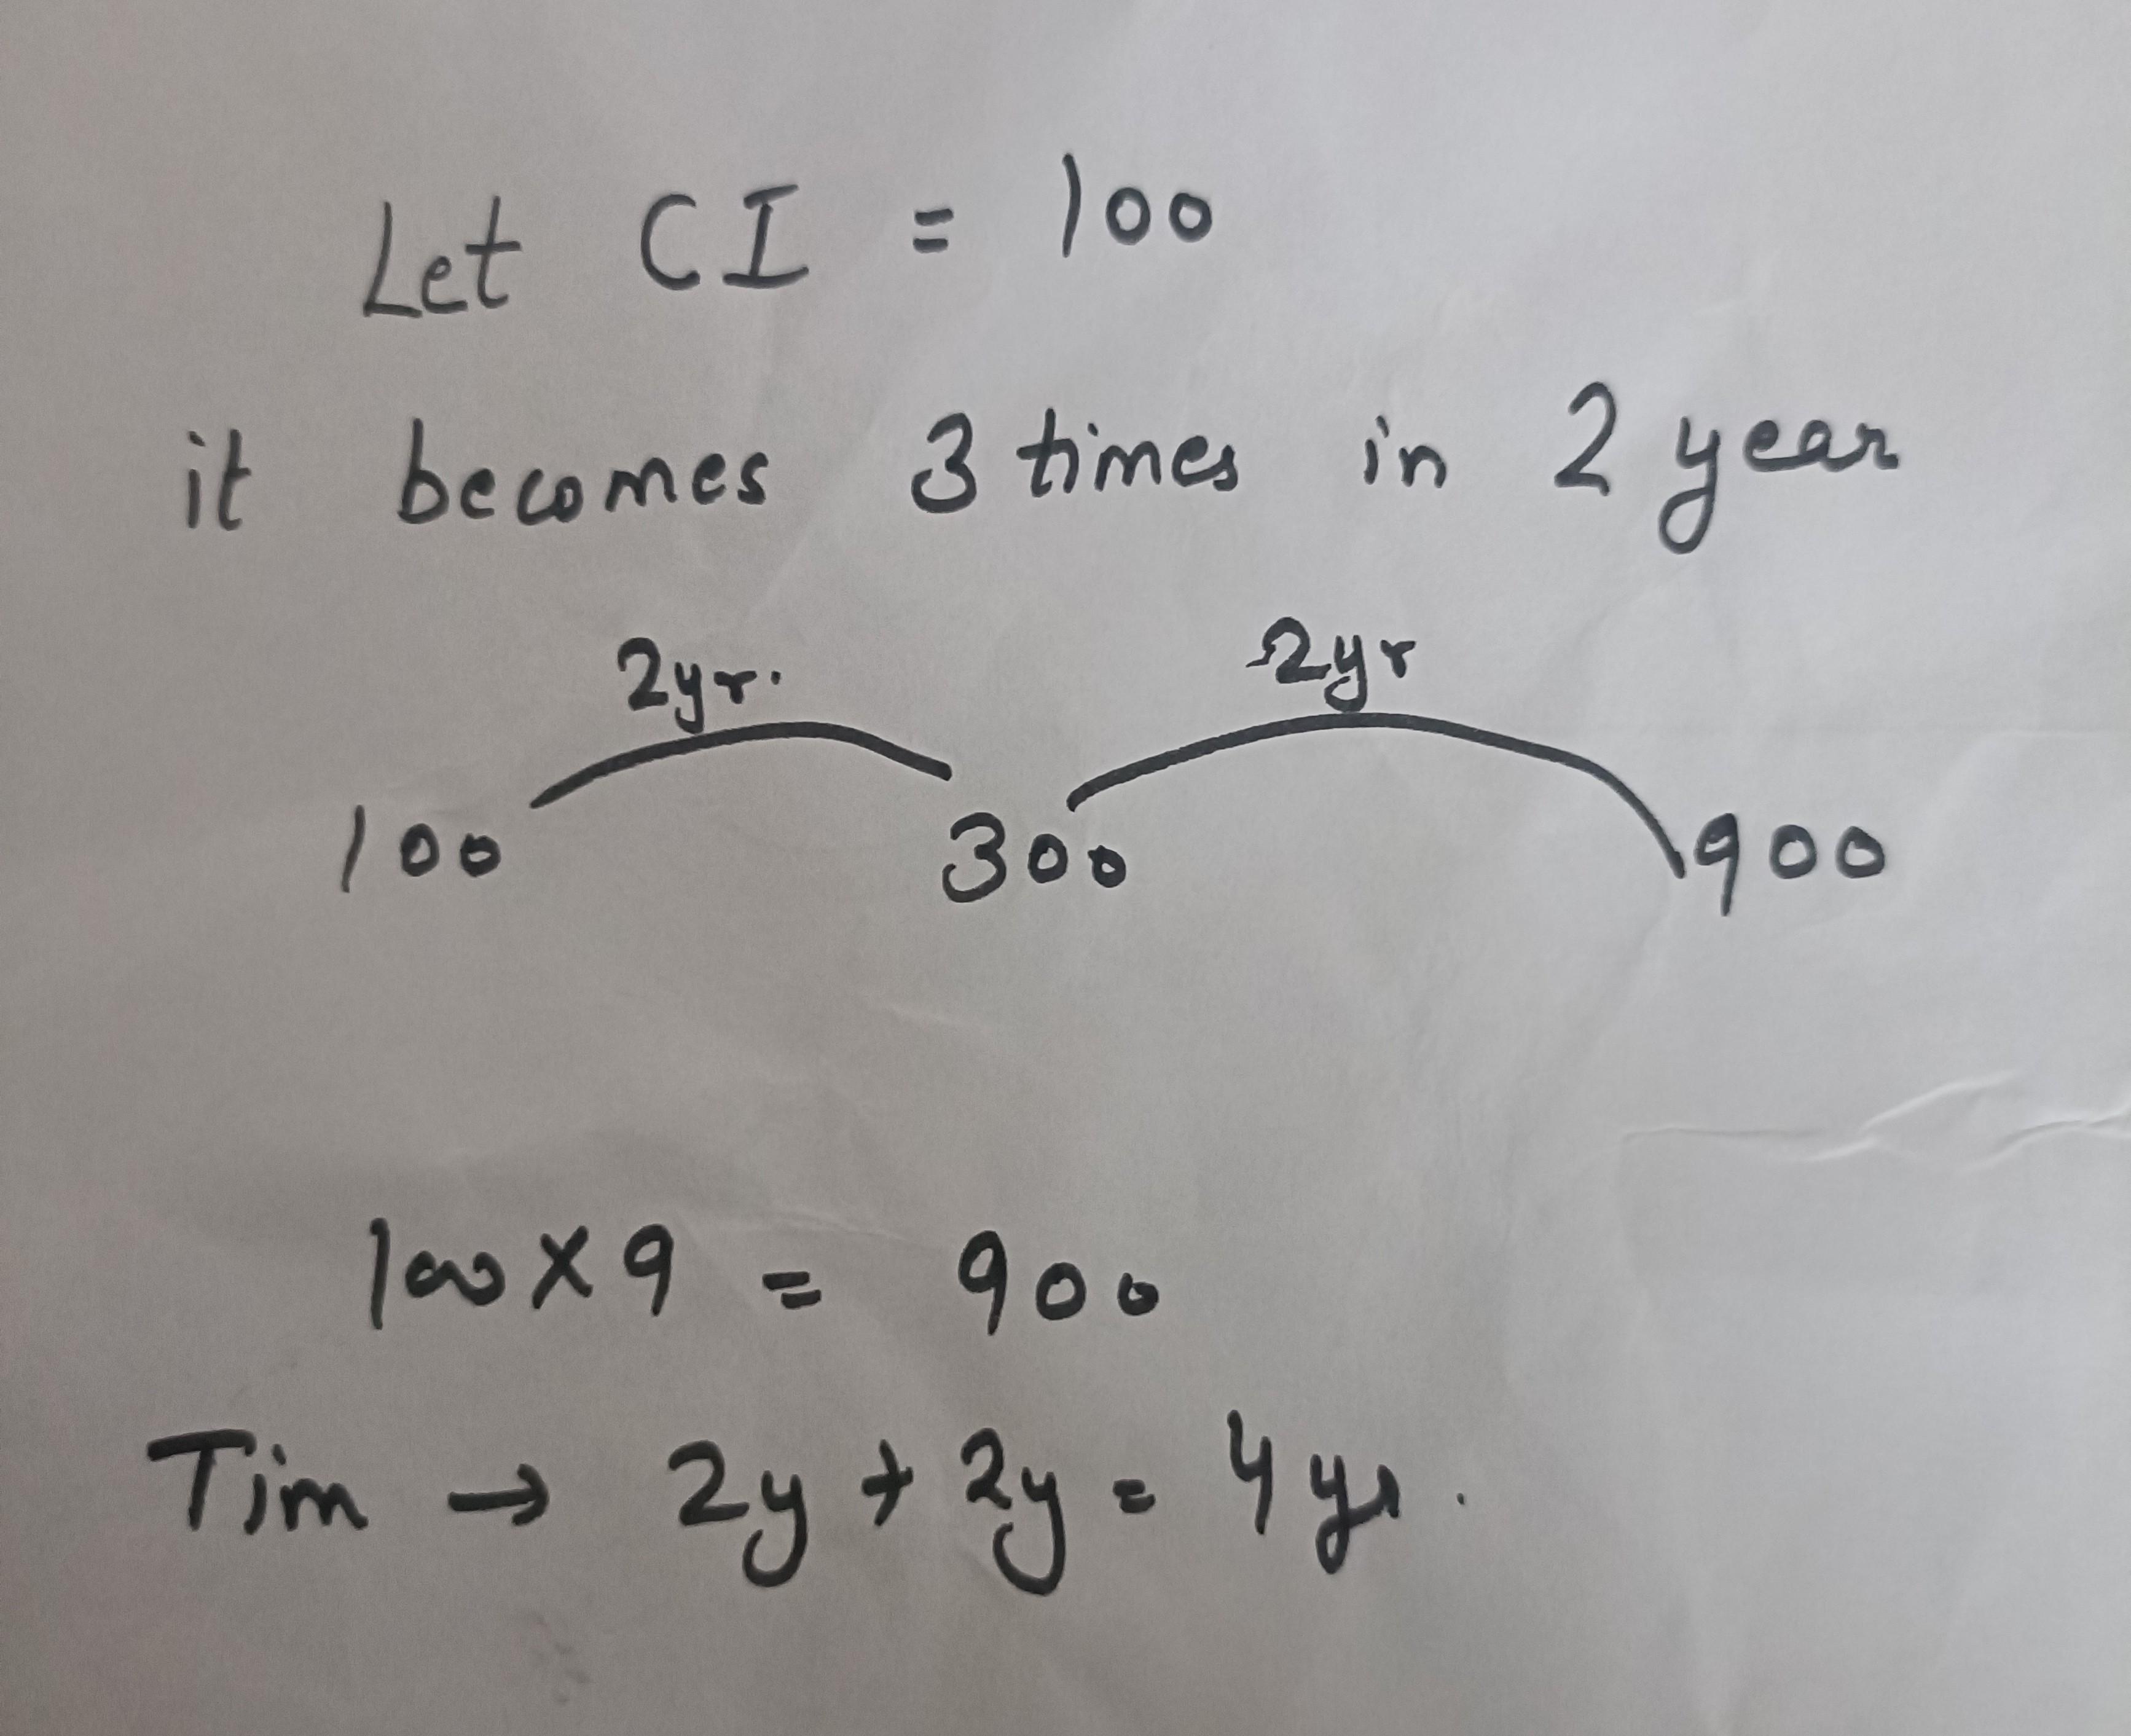 Let CI = 100
it becomes 3 times in 2 year
2yr. 2yr
100 300 900
100 × 9 = 900
Tim → 2y + 2y = 4 yr.